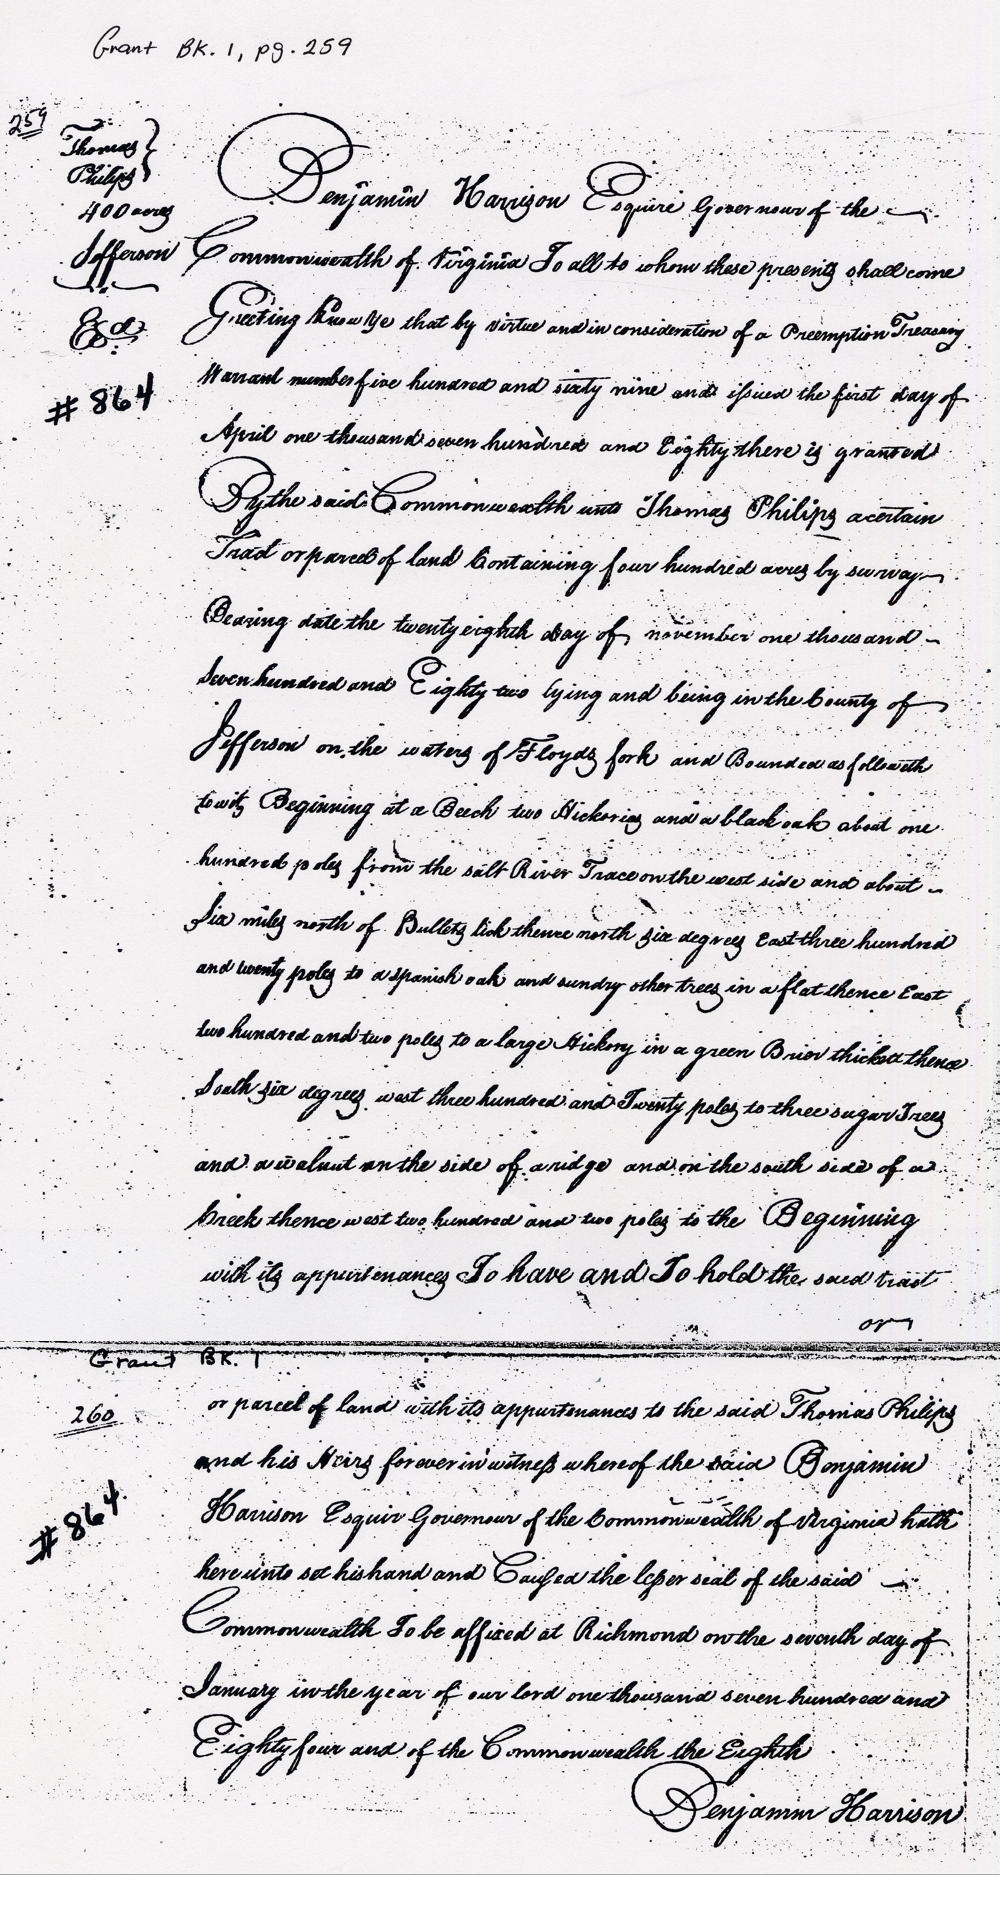 Grant BK. 1, pg. 259
259
Thomas
Philips
400 acres
Jefferson
Exd.
# 864
Benjamin Harrison Esquire Governour of the
Commonwealth of Virginia To all to whom these presents shall come
Greeting Know Ye that by virtue and in consideration of a Preemption Treasury
Warrant number five hundred and sixty nine and issued the first day of
April one thousand seven hundred and Eighty there is granted
By the said Commonwealth unto Thomas Philips a certain
Tract or parcel of land Containing four hundred acres by survay
Bearing date the twenty eighth day of november one thousand
Seven hundred and Eighty two lying and being in the County of
Jefferson on the waters of Floyds fork and Bounded as followeth
towit Beginning at a Beech two Hickories and a black oak about one
hundred poles from the salt River Trace on the west side and about
Six miles north of Bullets lick thence north six degrees East three hundred
and twenty poles to a spanish oak and sundry other trees in a flat thence East
two hundred and two poles to a large Hickory in a green Brier thickett thence
South six degrees west three hundred and Twenty poles to three sugar Trees
and a walnut on the side of a ridge and on the south side of a
Creek thence west two hundred and two poles to the Beginning
with its appurtenances To have and To hold the said tract
or
Grant BK. 1
260
# 864
or parcel of land with its appurtenances to the said Thomas Philips
and his Heirs forever in witness whereof the said Benjamin
Harrison Esquir Governour of the Commonwealth of Virginia hath
hereunto set his hand and Caused the lesser seal of the said
Commonwealth To be affixed at Richmond on the seventh day of
January in the year of our lord one thousand seven hundred and
Eighty four and of the Commonwealth the Eighth
Benjamin Harrison